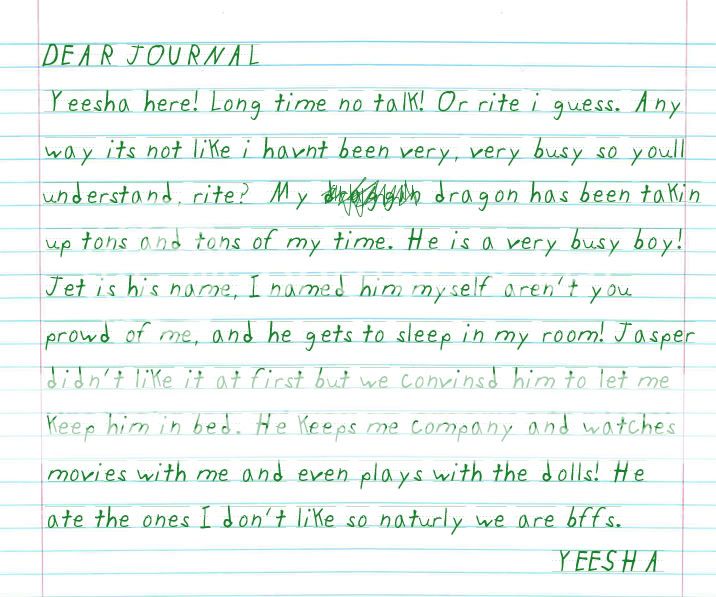 DEAR JOURNAL
Yeesha here! Long time no talk! Or rite i guess. Any
way its not like i havnt been very, very busy so youll
understand, rite? My dragon has been takin
up tons and tons of my time. He is a very busy boy!
Jet is his name, I named him myself aren't you
prowd of me, and he gets to sleep in my room! Jasper
didn't like it at first but we convinsd him to let me
keep him in bed. He keeps me company and watches
movies with me and even plays with the dolls! He
ate the ones I don't like so naturly we are bffs.
YEESHA